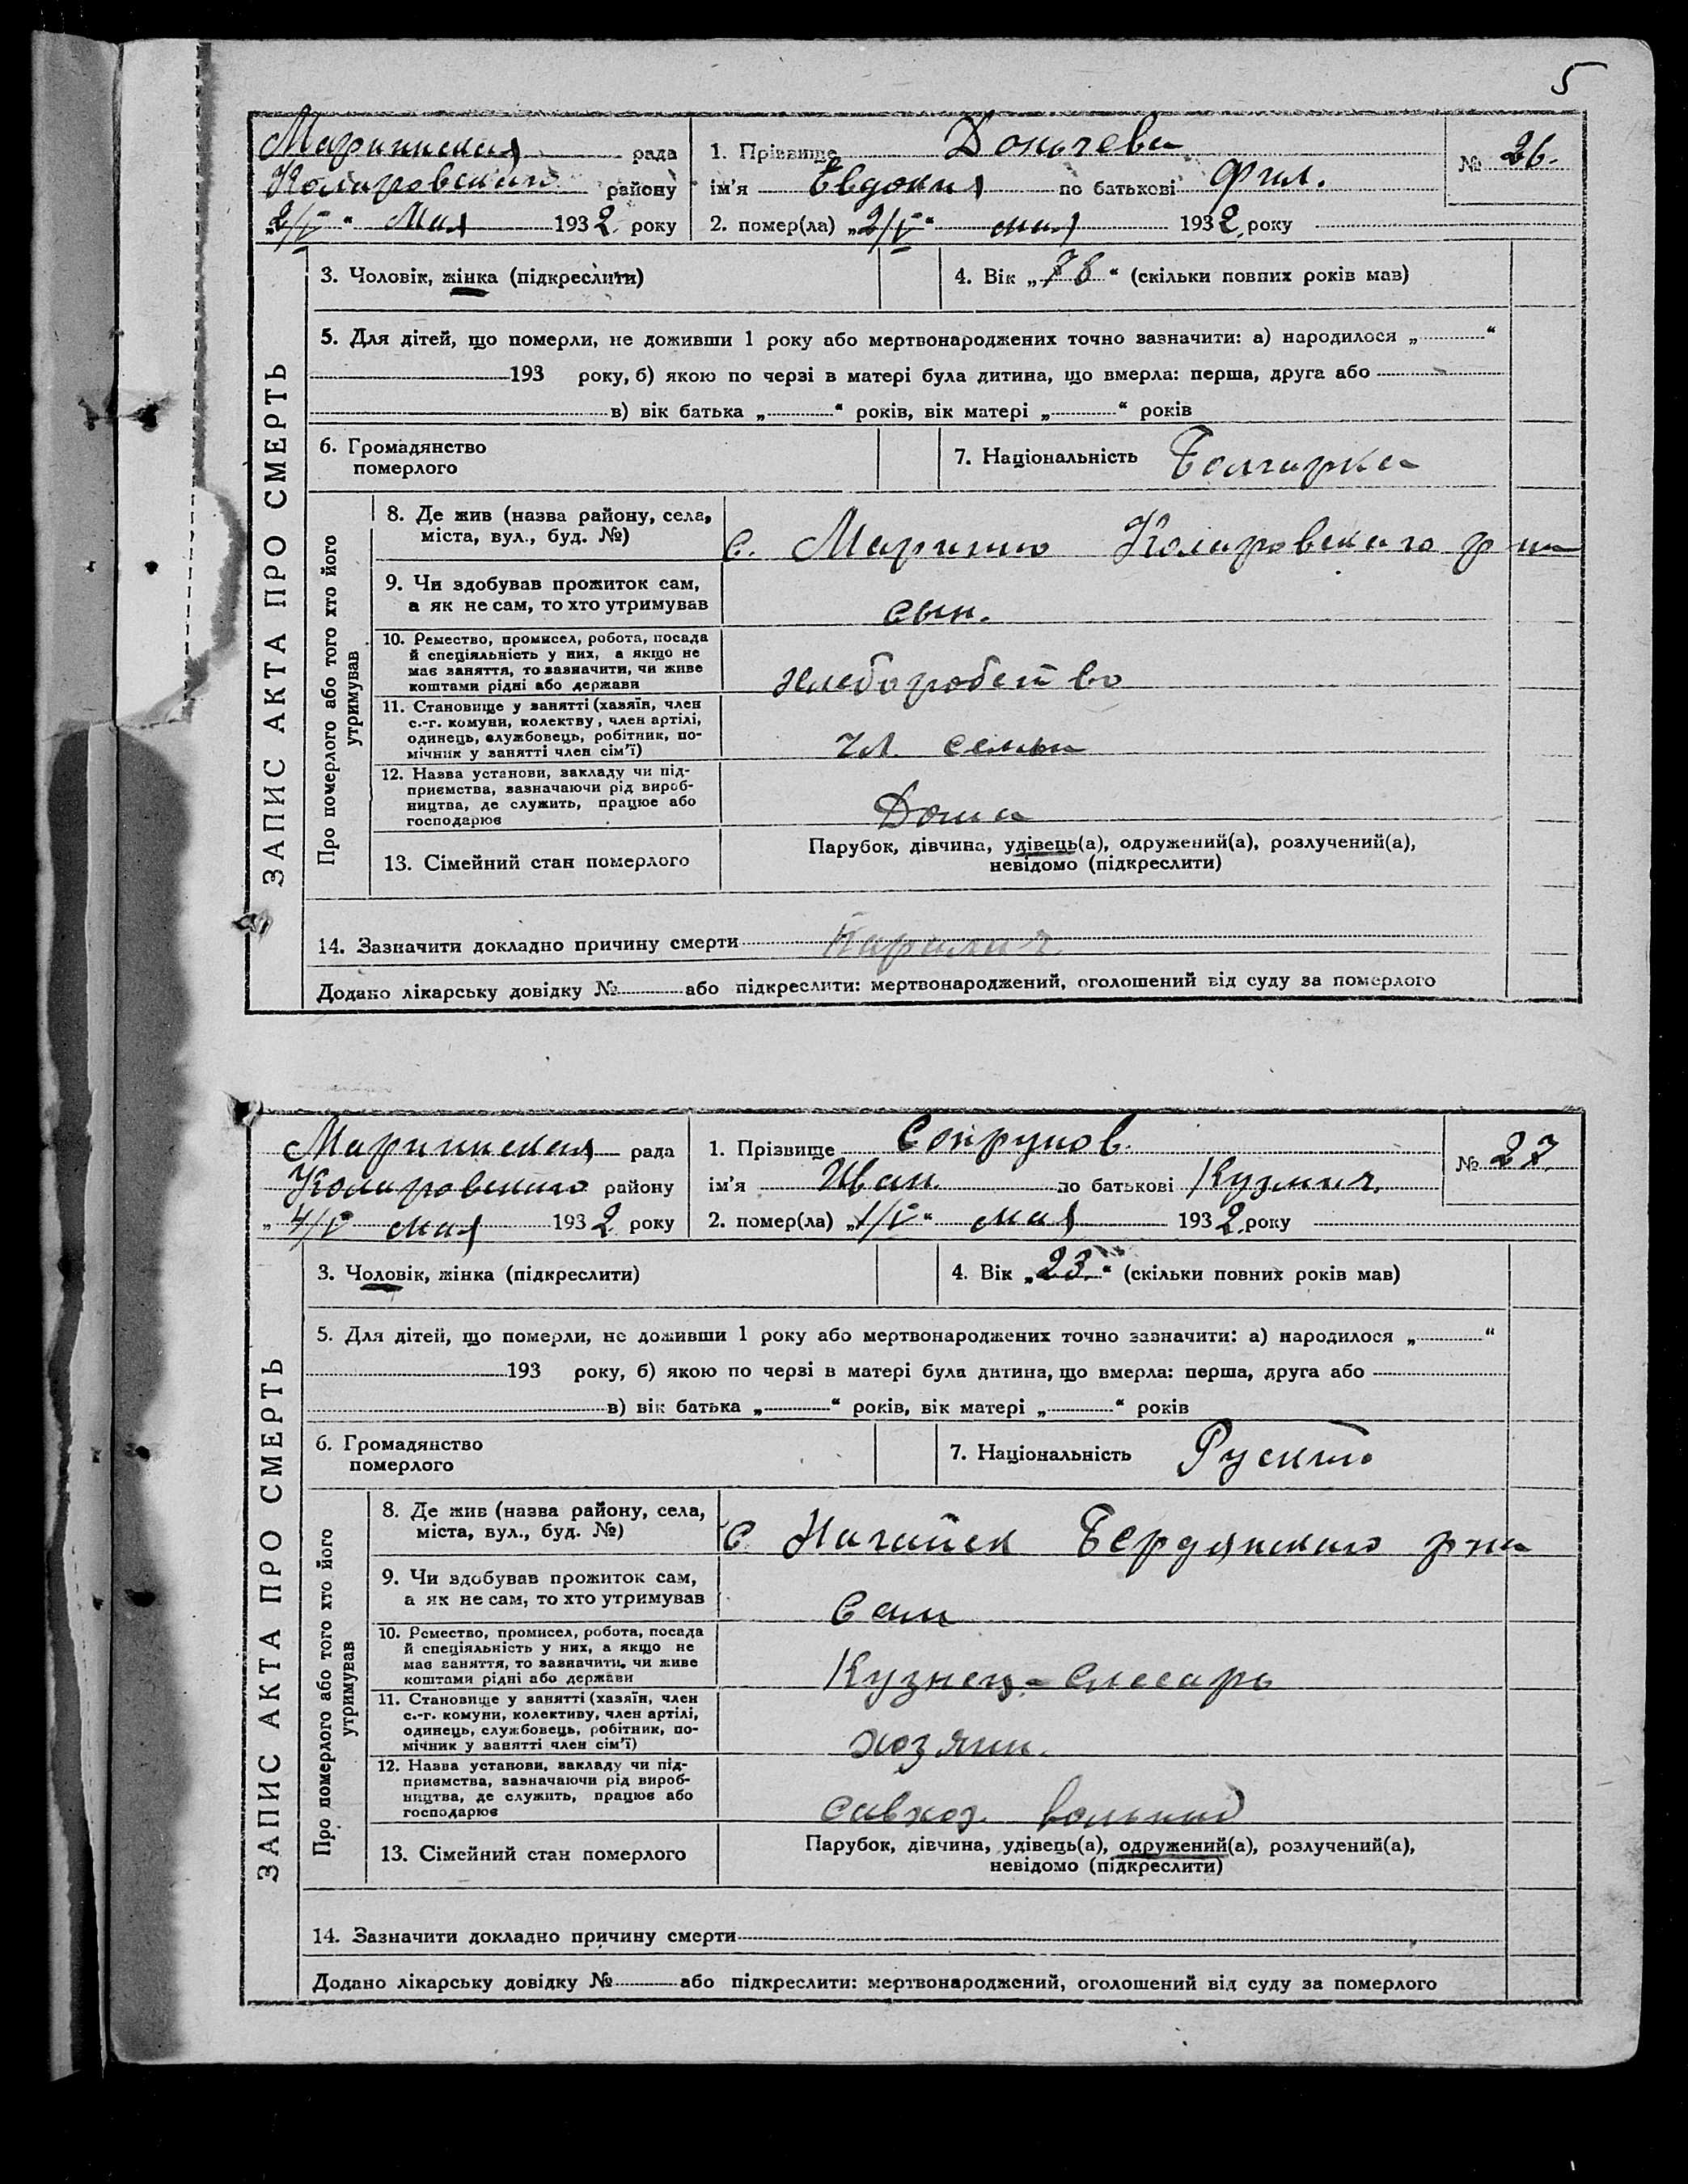 5
Мариинская рада
Коларовского району
„2/V“ Мая 1932 року
1. Прізвище Доньчева
ім'я Евдокия по батькові Фил.
2. помер(ла) „2/V“ мая 1932 року
№ 26.
ЗАПИС АКТА ПРО СМЕРТЬ
3. Чоловік, жінка (підкреслити)
4. Вік „78“ (скільки повних років мав)
5. Для дітей, що померли, не доживши 1 року або мертвонароджених точно зазначити: а) народилося „ “
193 року, б) якою по черзі в матері була дитина, що вмерла: перша, друга або
в) вік батька „ “ років, вік матері „ “ років
6. Громадянство
померлого
7. Національність Болгарка
Про померлого або того хто його
утримував
8. Де жив (назва району, села,
міста, вул., буд. №)
с. Марино Коларовского р-на
9. Чи здобував прожиток сам,
а як не сам, то хто утримував
сын.
10. Ремество, промисел, робота, посада
й спеціяльність у них, а якщо не
має заняття, то зазначити, чи живе
коштами рідні або держави
хлеборобство
11. Становище у занятті (хазяїн, член
с.-г. комуни, колектву, член артілі,
одинець, службовець, робітник, по-
мічник у занятті член сім'ї)
чл. семьи
12. Назва установи, закладу чи під-
приємства, зазначаючи рід вироб-
ництва, де служить, працює або
господарює
Дома
13. Сімейний стан померлого
Парубок, дівчина, удівець(а), одружений(а), розлучений(а),
невідомо (підкреслити)
14. Зазначити докладно причину смерти Паралич
Додано лікарську довідку № або підкреслити: мертвонароджений, оголошений від суду за померлого
Мариинская рада
Коларовского району
„4/V“ мая 1932 року
1. Прізвище
ім'я Иван по батькові Кузмич.
2. помер(ла) „1/V“ мая 1932 року
№ 27
ЗАПИС АКТА ПРО СМЕРТЬ
3. Чоловік, жінка (підкреслити)
4. Вік „23.“ (скільки повних років мав)
5. Для дітей, що померли, не доживши 1 року або мертвонароджених точно зазначити: а) народилося „ “
193 року, б) якою по черзі в матері була дитина, що вмерла: перша, друга або
в) вік батька „ “ років, вік матері „ “ років
6. Громадянство
померлого
7. Національність
Про померлого або того хто його
утримував
8. Де жив (назва району, села,
міста, вул., буд. №)
с Нагайск Бердянского р-на
9. Чи здобував прожиток сам,
а як не сам, то хто утримував
сам
10. Ремество, промисел, робота, посада
й спеціяльність у них, а якщо не
має заняття, то зазначити, чи живе
коштами рідні або держави
Кузнец-слесарь
11. Становище у занятті (хазяїн, член
с.-г. комуни, колективу, член артілі,
одинець, службовець, робітник, по-
мічник у занятті член сім'ї)
хозяин.
12. Назва установи, закладу чи під-
приємства, зазначаючи рід вироб-
ництва, де служить, працює або
господарює
савхоз
13. Сімейний стан померлого
Парубок, дівчина, удівець(а), одружений(а), розлучений(а),
невідомо (підкреслити)
14. Зазначити докладно причину смерти
Додано лікарську довідку № або підкреслити: мертвонароджений, оголошений від суду за померлого